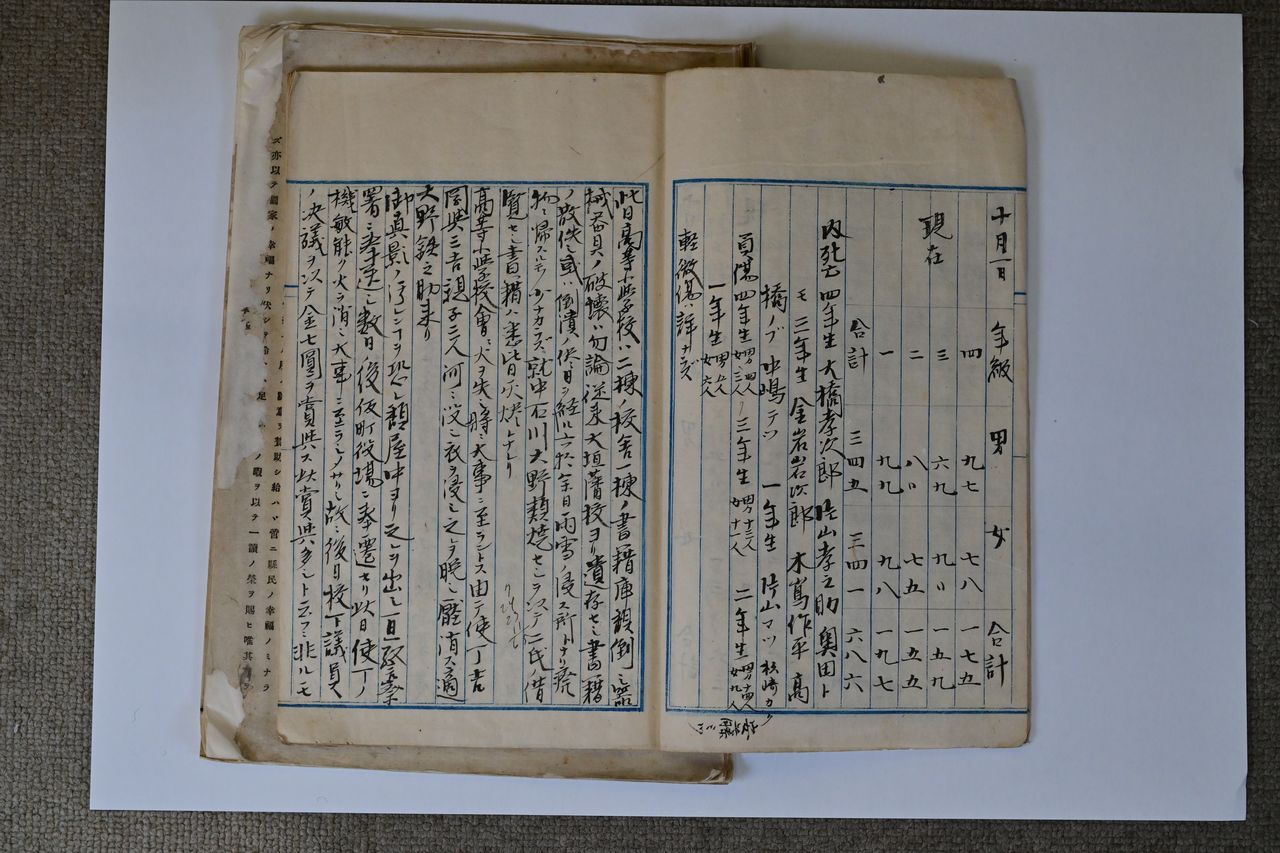 十月一日 年級 男 女 合計
現在 四 九七 七八 一七五
三 六九 九〃 一五九
二 八〃 七五 一五五
一 九九 九八 一九七
合計 三四五 三四一 六八六
内死亡 四年生 大橋孝次郎 片山孝之助 奥田ト
モ 三年生 金岩岩次郎 木寫作平 高
橋ノブ 中嶋テツ 一年生 片山マツ 杉崎カク
負傷 四年生 男四人 女三人 三年生 男十三人 女十一人 二年生 女九人
一年生 男五人 女六人
軽微傷ハ詳ナラズ
此日高等小学校ハ二棟ノ校舎一棟ノ書籍庫顛倒シ器
械器具ノ破壊ハ勿論従来大垣藩校ヨリ遺存セシ書籍
ノ散佚シ或ハ倒潰ノ侭日ヲ経ル六十余日雨雪ノ浸ス所トナリ廃
物ニ帰スルモノ少ナカラズ就中石川大野類焼セシヲ以テ仁氏ノ借
覧セシ書籍ハ悉皆灰燼トナレリ
高等小学校会ニ火ヲ失シ将ニ大事ニ至ラントス由テ使丁吉
岡與三吉親子二人河ニ没シ衣ヲ浸シ之レヲ晩シ壓消ス適
大野鉄之助来リ
御真影ノ汚レンヿヲ恐レ顛屋中ヨリ之レヲ出シ一旦警察
署ニ奉遷シ数日後仮町役場ニ奉遷セリ此日使丁ノ
機敏能ク火ヲ消シ大事ニ至ラシメザリシ故後日校下議員
ノ決議ヲ以テ金七圓ヲ賞與ス此賞與多シト云フニ非ルモ
ズ亦以テ國家ノ幸福ナリ
給ハヾ啻ニ縣民ノ幸福ノミナラ
ノ暇ヲ以テ一讀ノ榮ヲ賜ヒ唯其